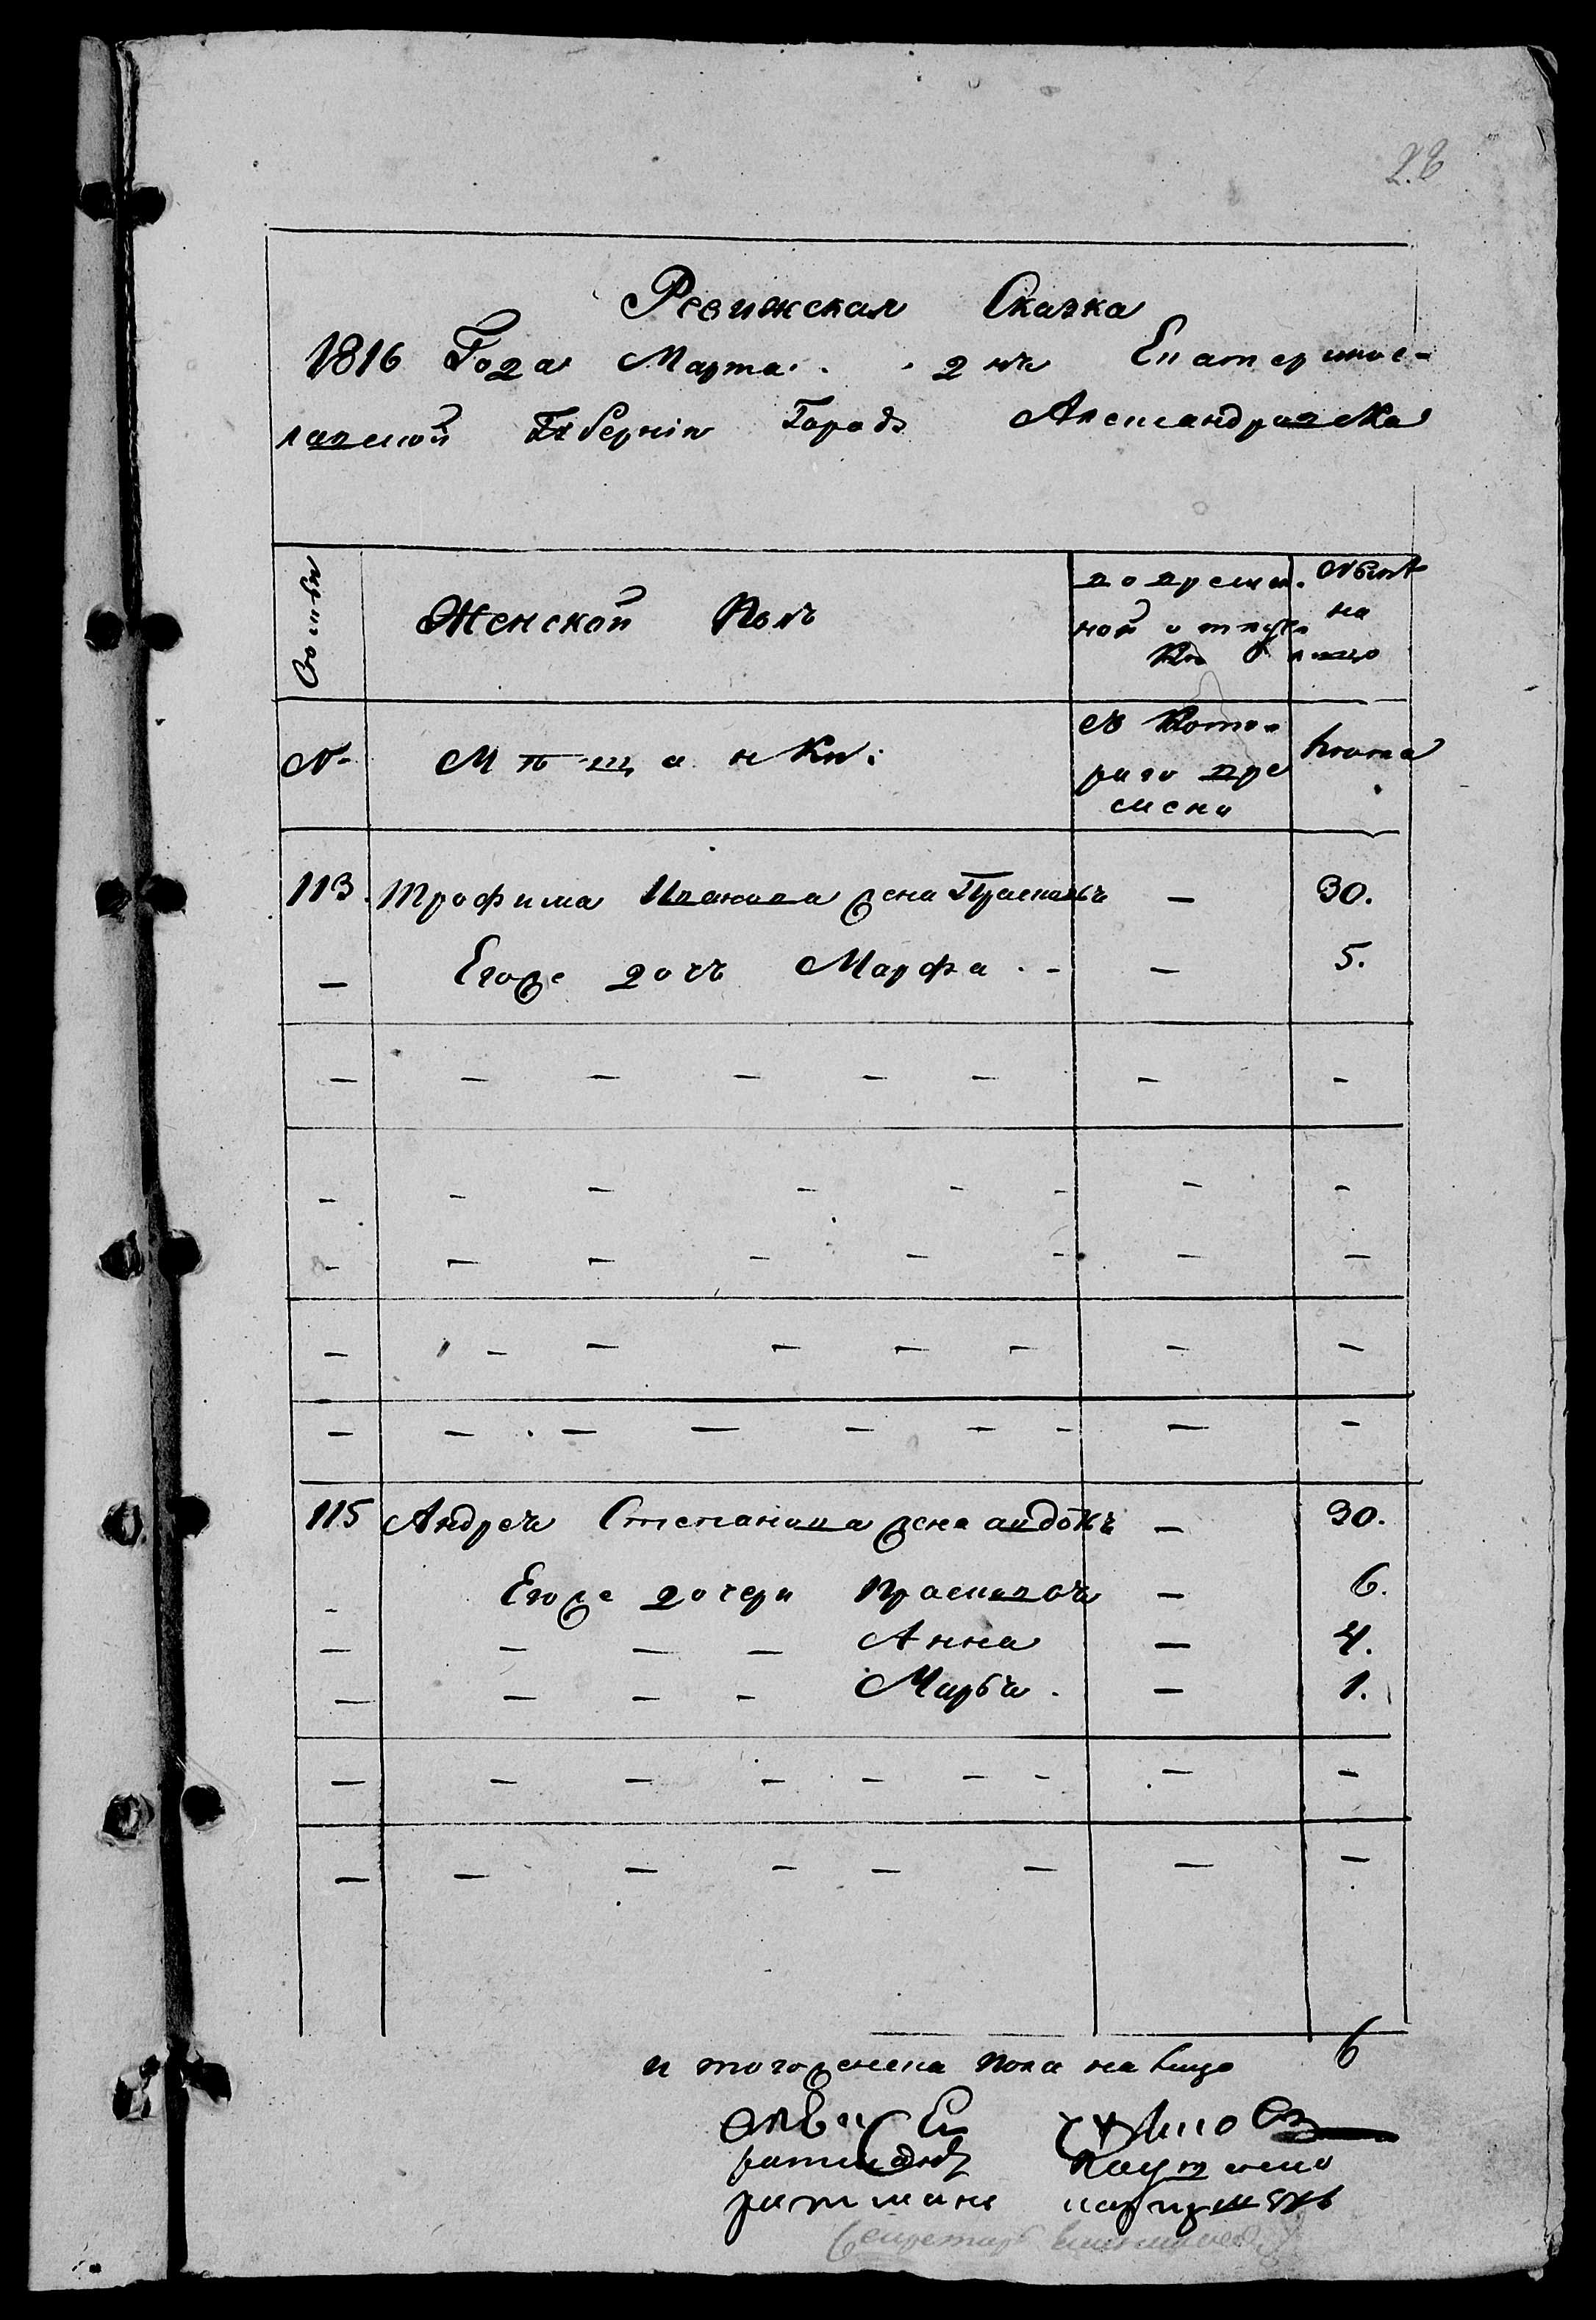 28
Ревижская Сказка
1816 Года Марта 2 дня Екатеринос-
лавской Губерніи Города Александровска
Семьи
Женской Полъ
во времен-
ной отлуч-
ке
Нынѣ
на
лицо
№
Мѣщанки:
Съ Кото-
раго вре
мени
Лѣта
113. Трофима Иванова жена Прасковья — 30.
— Егоже дочь Марфа — 5.
115 Андрея Степанова жена Авдотья — 30.
— Егоже дочери Прасковья — 6.
— — — — Анна — 4.
— — — — Марья — 1.
Итого женска пола на лицо 6
ратманъ
ратманъ
Секретарь